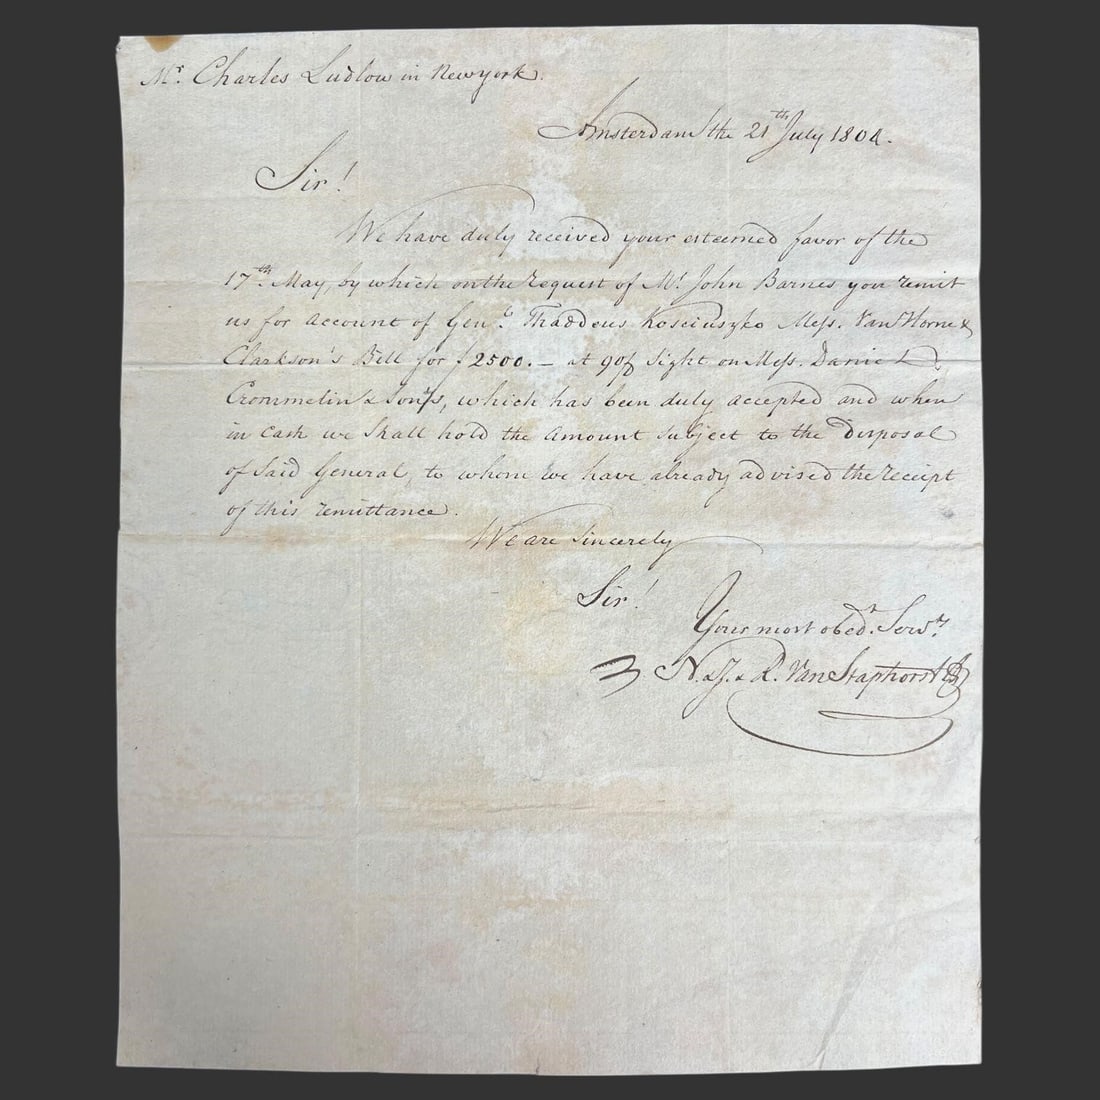 Mr. Charles Ludlow in Newyork.
Amsterdam the 21th July 1804.
Sir!
We have duly received your esteemed favor of the
17th. May, by which on the request of Mr John Barnes you remit
us for account of Genl. Thaddeus Kosciuszko Mess. Van Horne &
Clarkson's Bill for f2500.— at 90/ Sight on Mess. Daniel
Crommelin & Son's, which has been duly accepted and when
in Cash we shall hold the amount subject to the disposal
of said General, to whom we have already advised the receipt
of this remittance.
We are sincerely
Sir!
Your most obedt. Servts.
N. & J. & R. Van Staphorst